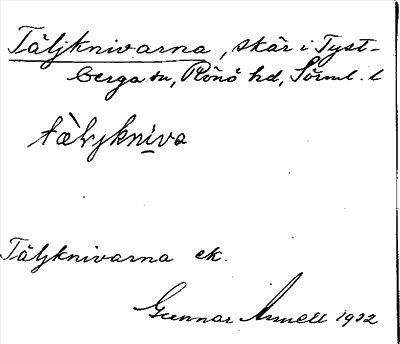 Täljknivarna, skär i Tyst-
berga sn, Rönö hd, Sörml. l
tæ̀ljkni̠va
Täljknivarna ek.
Gunnar Arnell 1932